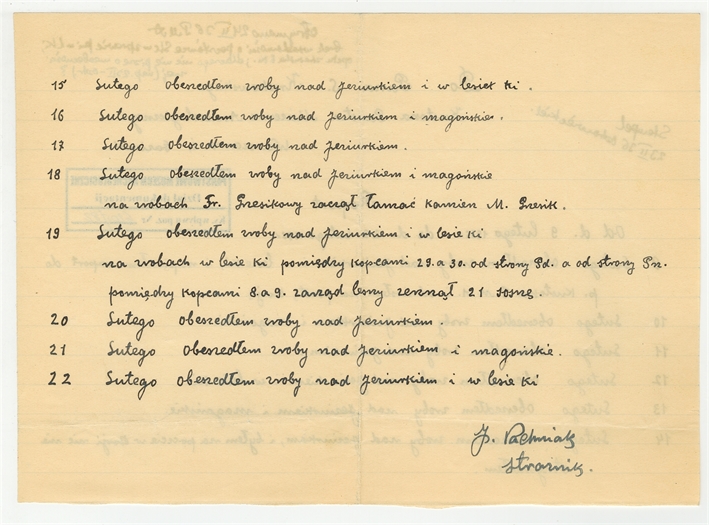 15 Lutego obeszedłem wroby nad jeziurkiem i w lesie Ki.
16 Lutego obeszedłem wroby nad jeziurkiem i magońskie.
17 Lutego obeszedłem wroby nad jeziurkiem.
18 Lutego obeszedłem wroby nad jeziurkiem i magońskie
na wrobach Fr. Gresikowy zaczął łamać kamien M.
19 Lutego obeszedłem wroby nad jeziurkiem i w lesie Ki
na wrobach w lesie Ki pomiędzy kopcami 29. a 30. od strony Pd. a od strony Pn.
pomiędzy kopcami 8. a 9. zarząd lesny zerznął 21 sosnę.
20 Lutego obeszedłem wroby nad jeziurkiem.
21 Lutego obeszedłem wroby nad jeziurkiem i magońskie.
22 Lutego obeszedłem wroby nad jeziurkiem i w lesie Ki
J. Pachniak
strażnik.